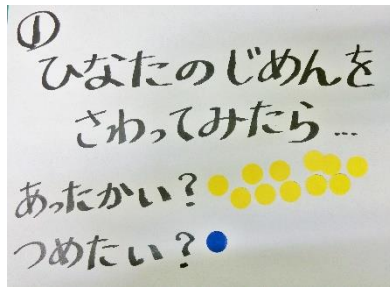 ①
ひなたのじめんを
さわってみたら…
あったかい?
つめたい?